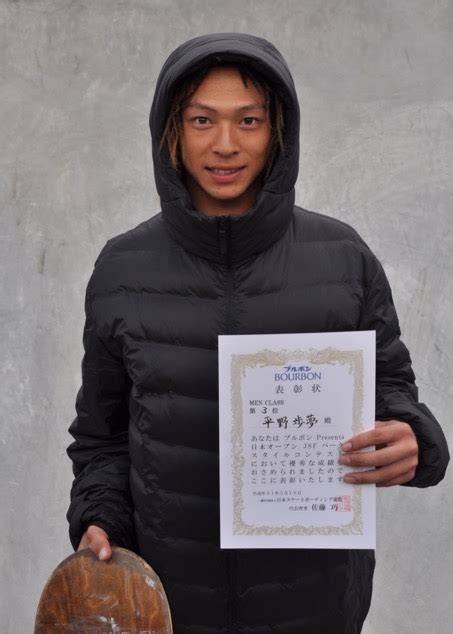 ブルボン
BOURBON
表彰状
MEN CLASS
第 3 位
平野 歩夢 殿
あなたは ブルボン Presents
日本オープン JSF パーク
スタイルコンテスト
において優秀な成績を
おさめられましたので
ここに表彰いたします
平成31年3月10日
日本スケートボーディング連盟
代表理事 佐藤 巧